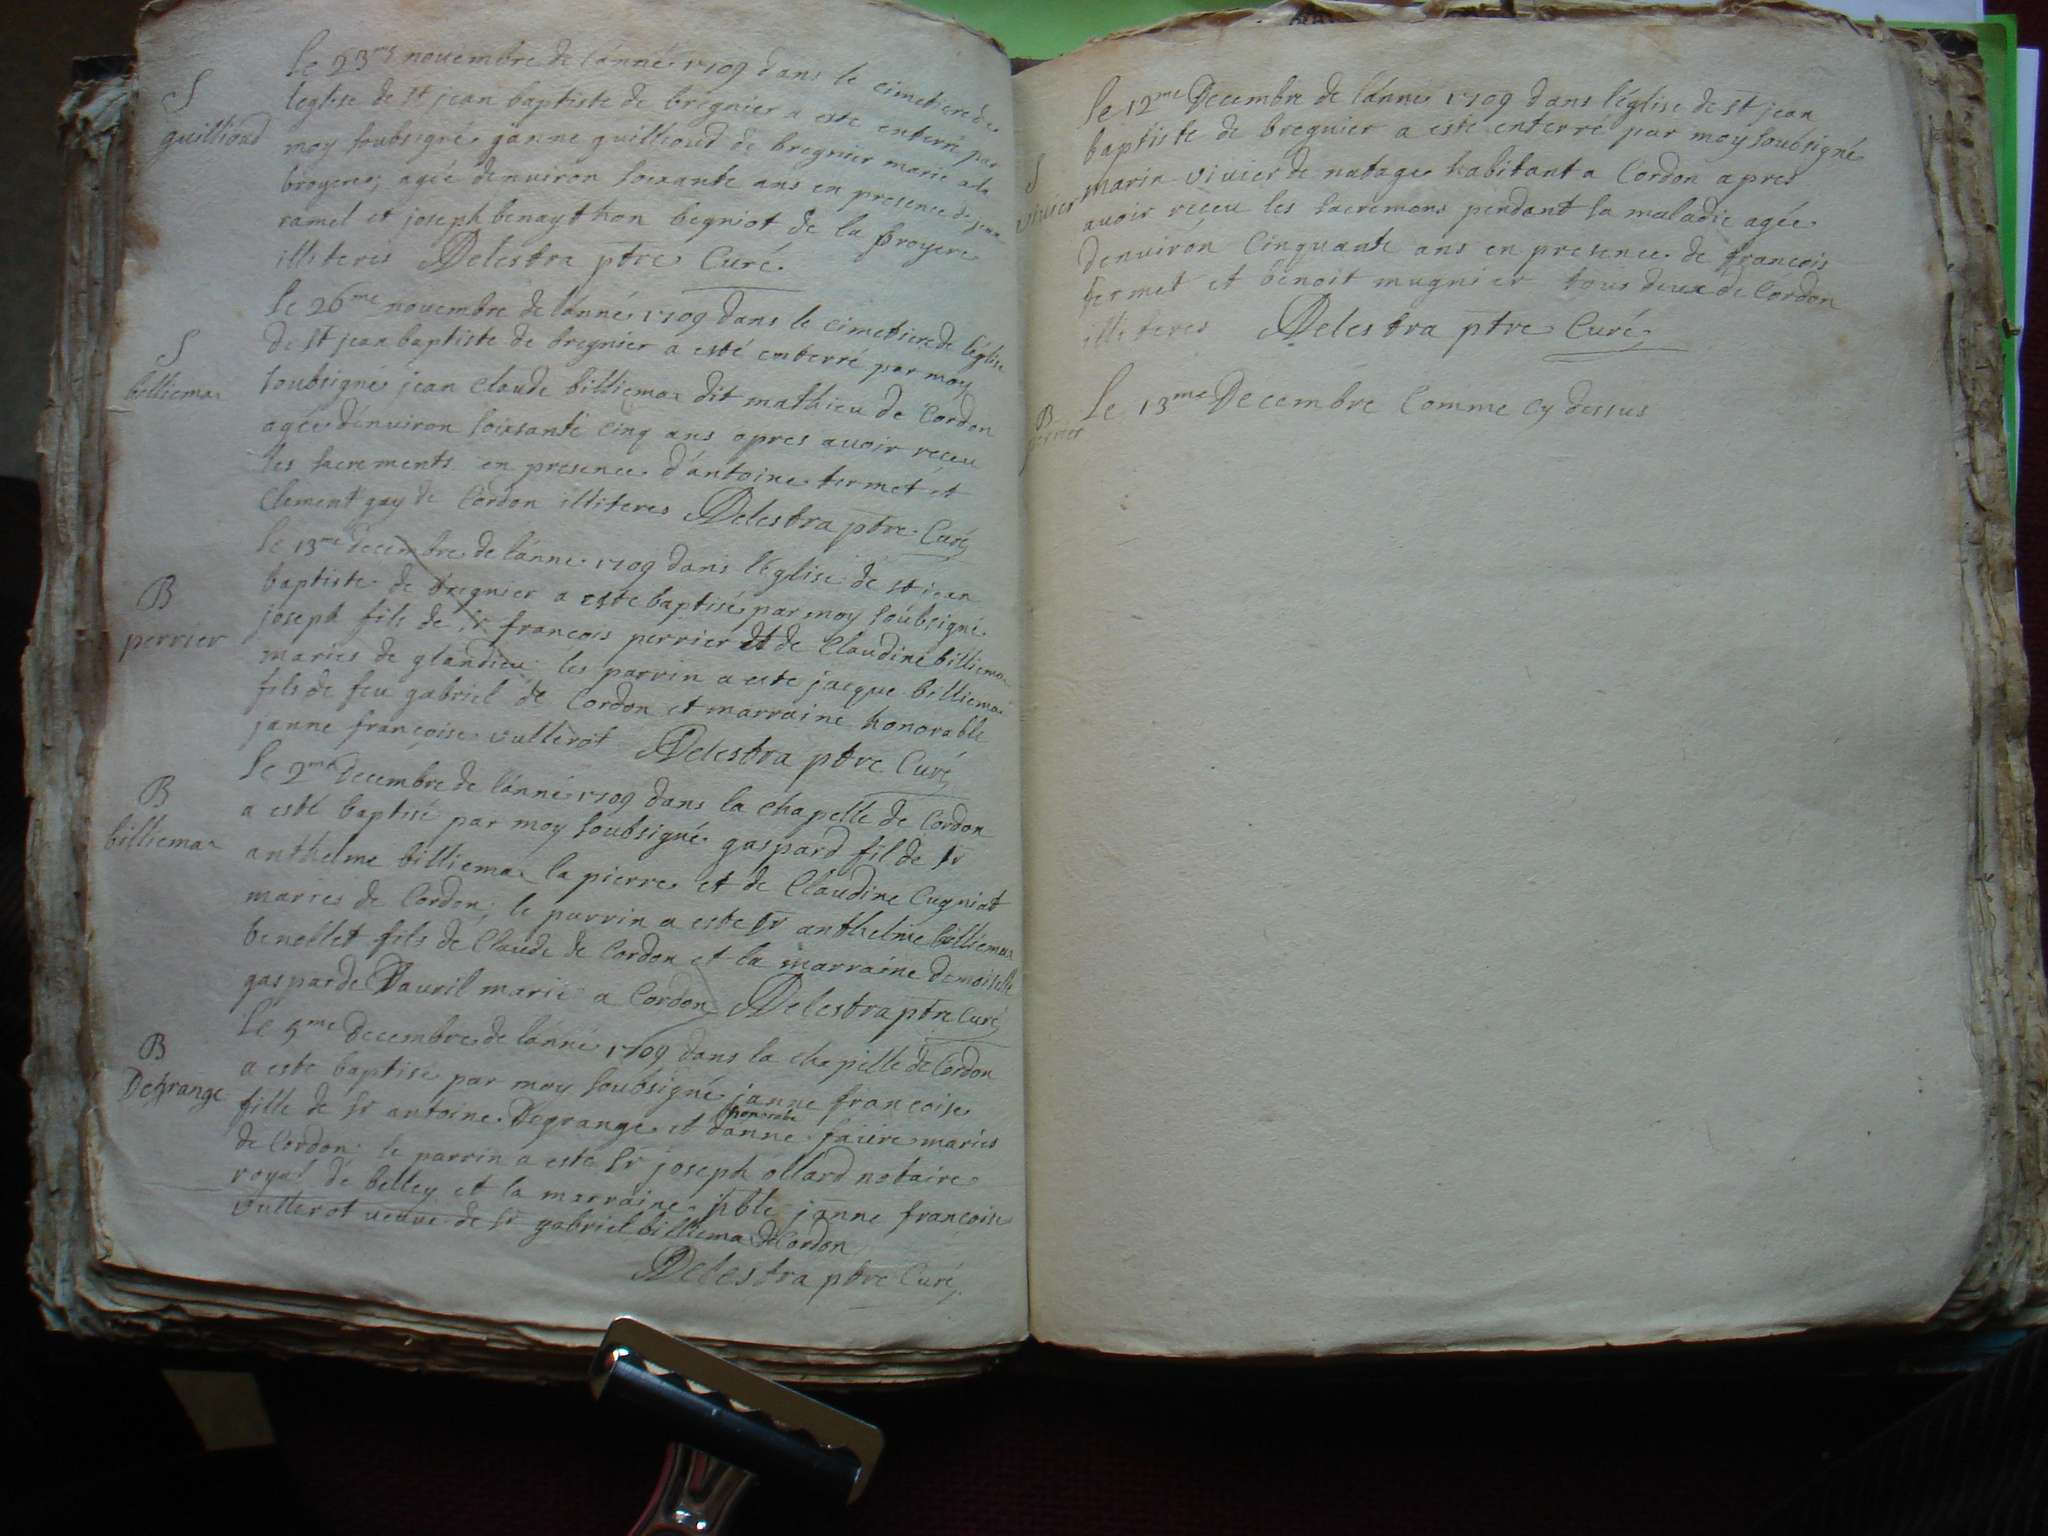 S
guillioud
Le 23me novembre de lánné 1709 dans le cimetiere de
leglise de st jean baptiste de bregnier a este enterré par
moy soubsigné janne guillioud de bregnier marié a la
broyere, ageé denviron soixante ans en presence de jean
ramel et joseph benaython begniot de la broyere
illiteres Delestra ptre Curé
S
billiemaz
Le 26me novembre de lánné 1709 dans le cimetiere de léglise
de st jean baptiste de bregnier a esté enterré par moy
soubsigné jean claude billiemaz dit mathieu de Cordon
ageé dénviron soixsante cinq ans apres avoir receu
les sacrements en presence d'antoine termet et
Clement gay de Cordon illiteres Delestra ptre Curé
B
perrier
Le 13me decembre de lánne 1709 dans léglise de st jean
baptiste de bregnier a este baptisé par moy soubsigné
joseph fils de sr francois perrier et de Claudine billiemaz
maries de glandieu; les parrin a este jacque billiemaz
fils de feu gabriel de Cordon et marraine honorable
janne françoise vullerot Delestra ptre Curé
B
billiemaz
Le 2me Decembre de lánné 1709 dans la chapelle de Cordon
a esté baptisé par moy soubsigné gaspard fil de sr
anthelme billiemaz la pierre et de Claudine Cugniat
maries de Cordon; le parrin a este sr anthelme billiemaz
benollet fils de Claude de Cordon et la marraine demoiselle
gasparde Dauril marié a Cordon Delestra ptre Curé
B
Degrange
Le 5me Decembre de lánne 1709 dans la chapelle de Cordon
a este baptisé par moy soubsigné janne francoise
fille de sr antoine Degrange et honorable danne faure maries
de Cordon; le parrin a esté sr joseph ollard notaire
royal de belley et la marraine hble janne françoise
vullerot veuve de sr gabriel billiemaz de Cordon
Delestra ptre Curé
S
vivier
Le 12me Decembre de lánné 1709 dans léglise de st jean
baptiste de bregnier a este enterré par moy soubsigné
maria vivier de natage habitant a Cordon apres
avoir receu les sacremons pendant sa maladie ageé
denvirón Cinquante ans en presence de françois
fermet et benoit mugnier tous deux de Cordon
illiteres Delestra ptre Curé
B
perrier
Le 13me Decembre Comme cy dessus